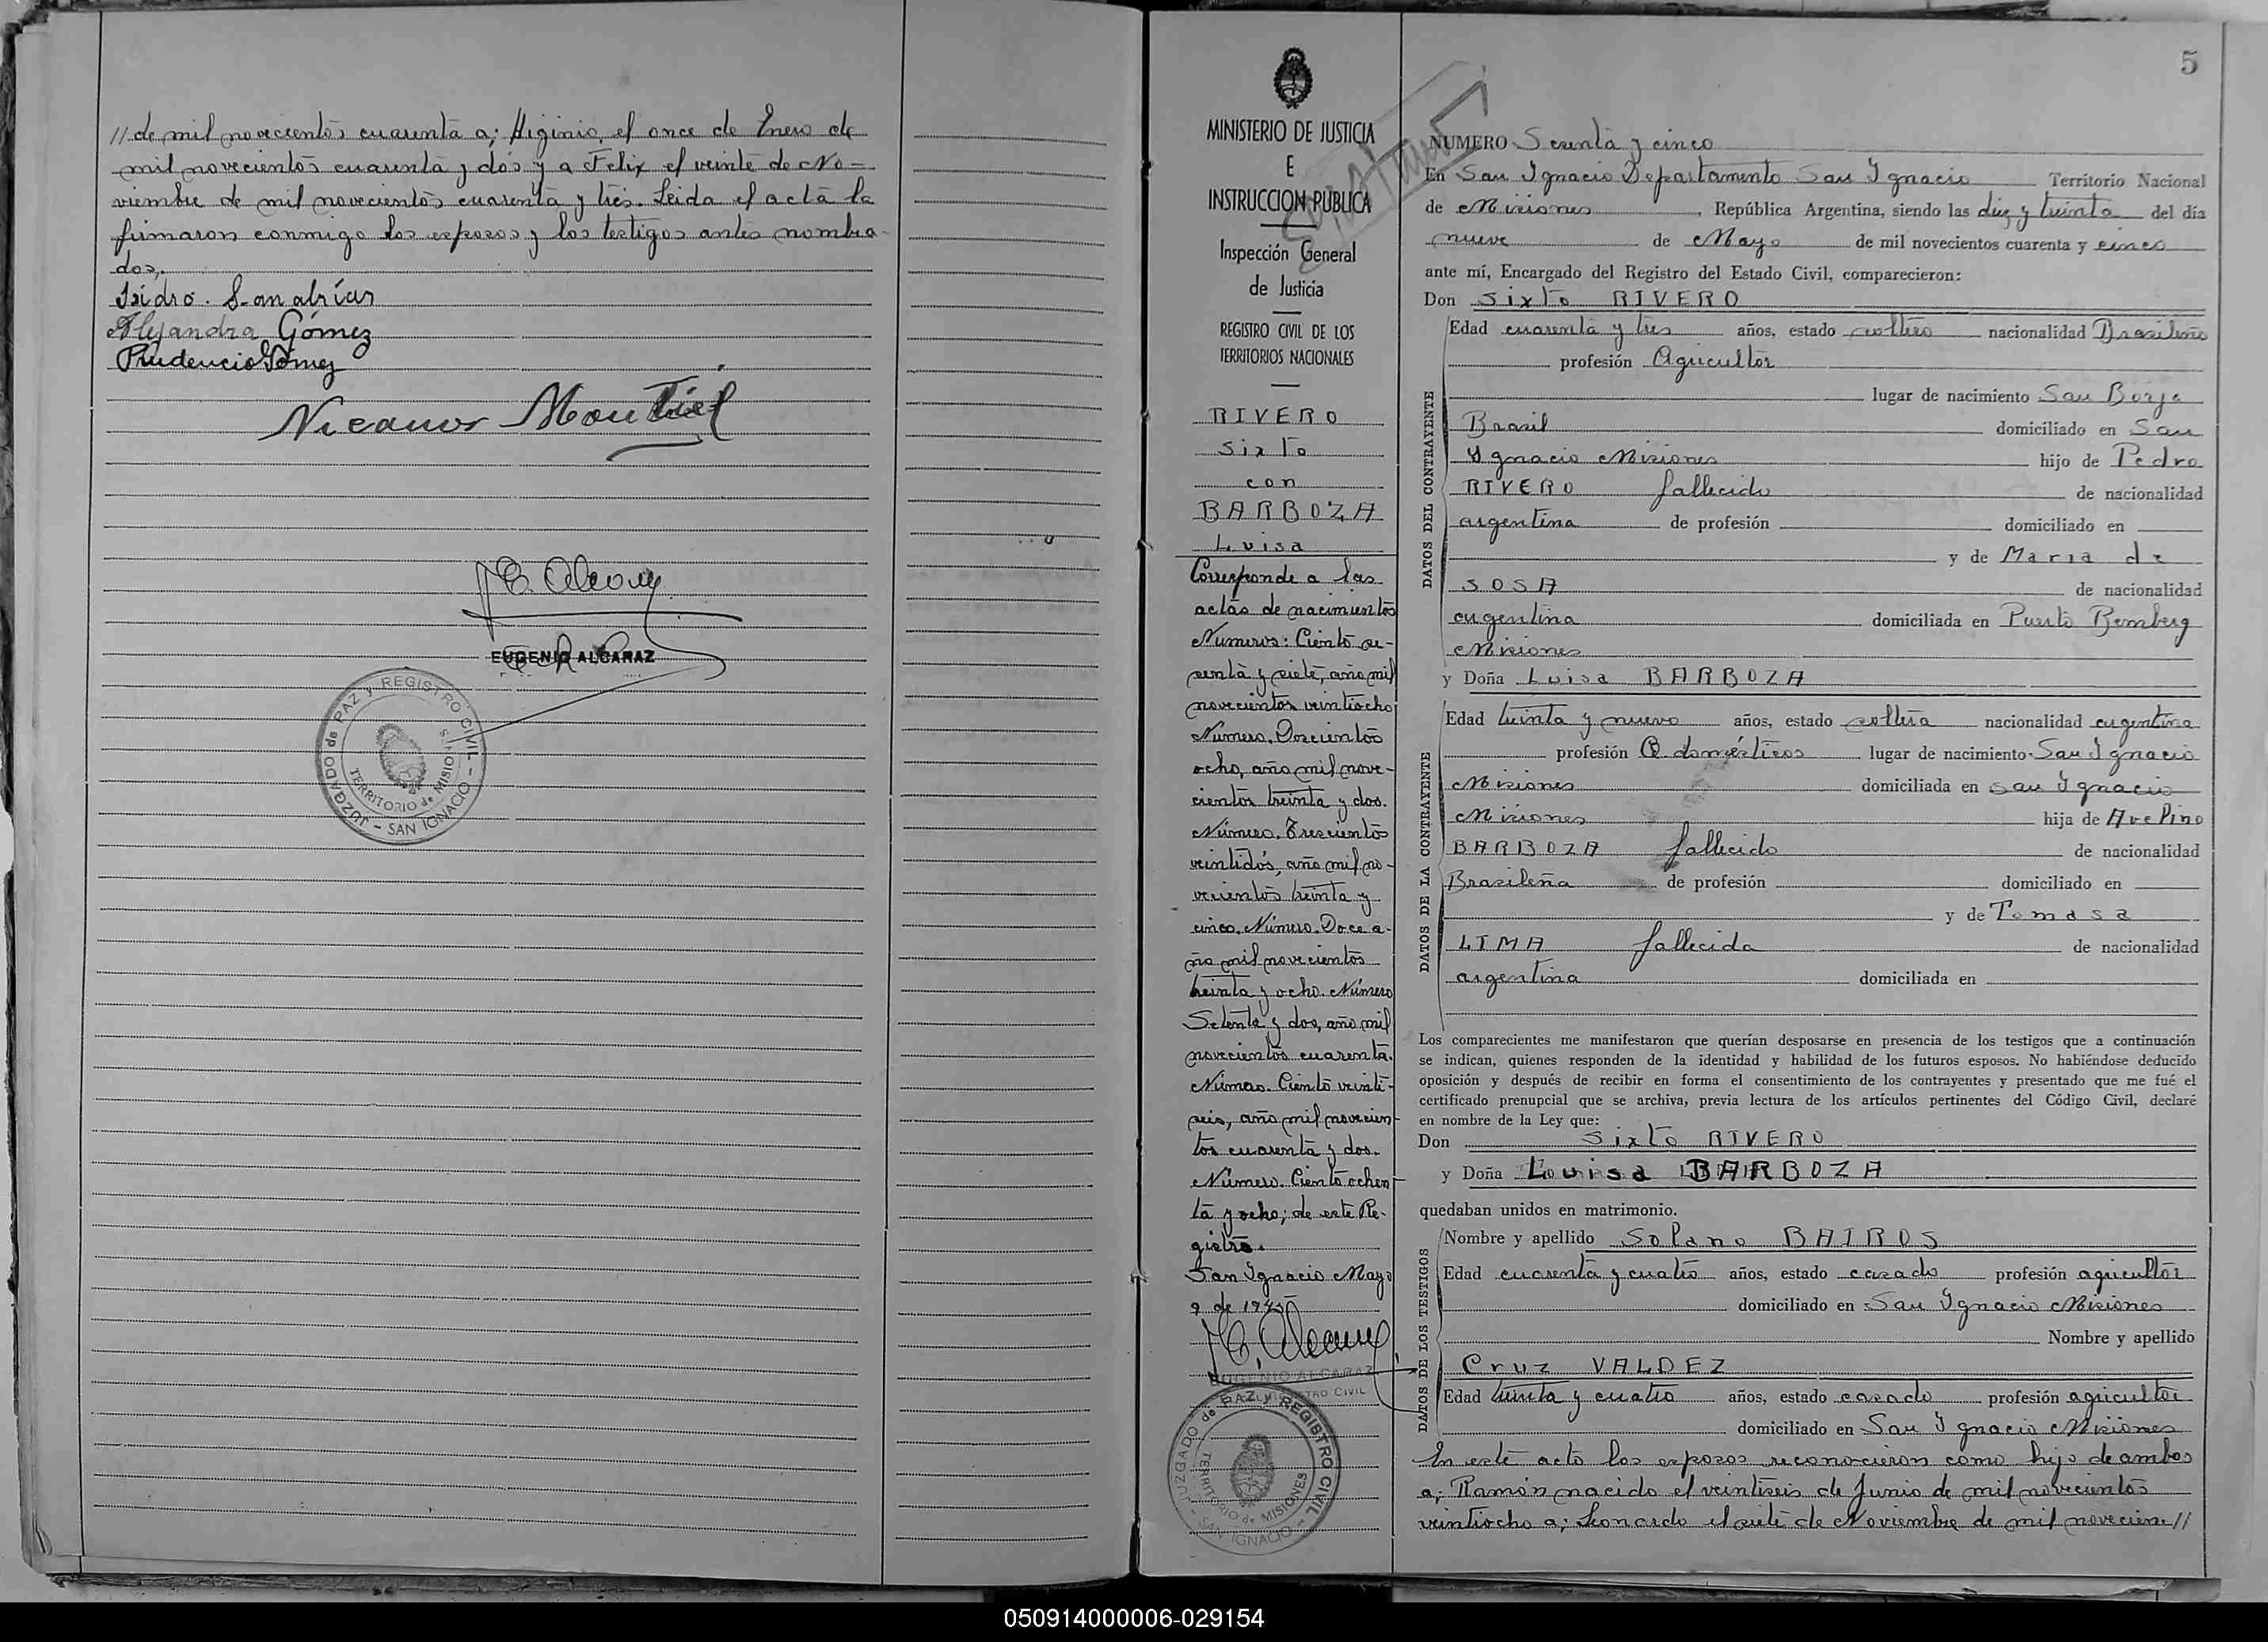 // de mil novecientos cuarenta a; Higinio, el once de Enero de
mil novecientos cuarenta y dos y a Felix el veinte de No=
viembre de mil novecientos cuarenta y tres. Leida el acta la
firmaron conmigo los esposos y los testigos antes nombra-
dos,.
Isidro. Sanabrías
Alejandra Gómez
Prudencio Gómez
Nicanor Montiel
EUGENIO ALCARAZ
JUZGADO de PAZ y REGISTRO CIVIL - SAN IGNACIO -
TERRITORIO de MISIONES
MINISTERIO DE JUSTICIA
E
INSTRUCCION PUBLICA
Inspección General
de Justicia
REGISTRO CIVIL DE LOS
TERRITORIOS NACIONALES
RIVERO
Sixto
con
BARBOZA
Luisa
Corresponde a las
actas de nacimientos
Numeros: Ciento se-
senta y siete, año mil
novecientos veintiocho
Número. Doscientos
ocho, año mil nove-
cientos treinta y dos.
Número. Trescientos
veintidós, año mil no-
vecientos treinta y
cinco. Número. Doce a-
ño mil novecientos
treinta y ocho. Número
Setenta y dos, año mil
novecientos cuarenta.
Número. Ciento veinti-
seis, año mil novecien-
tos cuarenta y dos.
Número. Ciento ochen-
ta y ocho; de este Re-
gistro.
San Ignacio Mayo
9 de 1945
EUGENIO ALCARAZ
JUZGADO de PAZ y REGISTRO CIVIL - SAN IGNACIO -
TERRITORIO de MISIONES
5
NUMERO Sesenta y cinco
En San Ignacio Departamento San Ignacio Territorio Nacional
de Misiones, República Argentina, siendo las diez y treinta del día
nueve de Mayo de mil novecientos cuarenta y cinco
ante mí, Encargado del Registro del Estado Civil, comparecieron:
Don Sixto RIVERO
DATOS DEL CONTRAYENTE
Edad cuarenta y tres años, estado soltero nacionalidad Brasileño
profesión Agricultor
lugar de nacimiento San Borja
Brasil domiciliado en San
Ignacio Misiones hijo de Pedro
RIVERO fallecido de nacionalidad
argentina de profesión domiciliado en
y de Maria de
SOSA de nacionalidad
argentina domiciliada en Puerto Bemberg
Misiones
y Doña Luisa BARBOZA
DATOS DE LA CONTRAYENTE
Edad treinta y nueve años, estado soltera nacionalidad argentina
profesión Q. domésticos lugar de nacimiento San Ignacio
Misiones domiciliada en San Ignacio
Misiones hija de Avelino
BARBOZA fallecido de nacionalidad
Brasileña de profesión domiciliado en
y de Tomasa
LIMA fallecida de nacionalidad
argentina domiciliada en
Los comparecientes me manifestaron que querían desposarse en presencia de los testigos que a continuación
se indican, quienes responden de la identidad y habilidad de los futuros esposos. No habiéndose deducido
oposición y después de recibir en forma el consentimiento de los contrayentes y presentado que me fué el
certificado prenupcial que se archiva, previa lectura de los artículos pertinentes del Código Civil, declaré
en nombre de la Ley que:
Don Sixto RIVERO
y Doña Luisa BARBOZA
quedaban unidos en matrimonio.
DATOS DE LOS TESTIGOS
Nombre y apellido Solano BAIROS
Edad cuarenta y cuatro años, estado casado profesión agricultor
domiciliado en San Ignacio Misiones
Nombre y apellido
Cruz VALDEZ
Edad treinta y cuatro años, estado casado profesión agricultor
domiciliado en San Ignacio Misiones
En este acto los esposos reconocieron como hijo de ambos
a; Ramón nacido el veintiseis de Junio de mil novecientos
veintiocho a; Leonardo el siete de Noviembre de mil novecien//
050914000006-029154